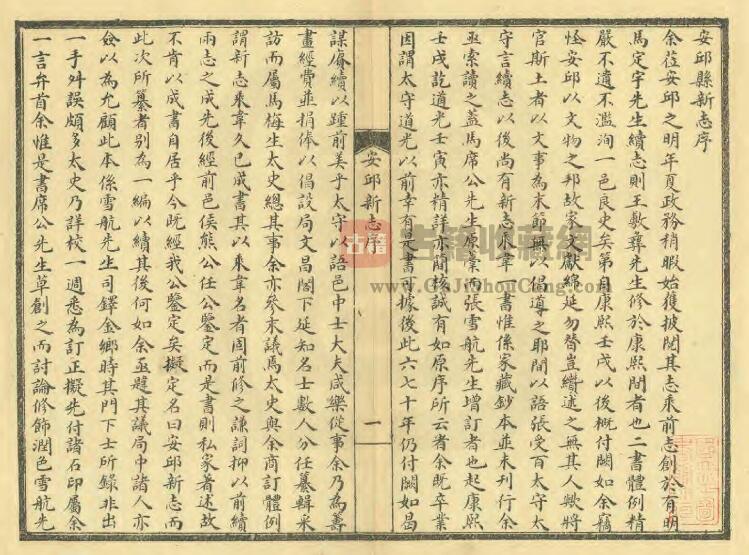 安邱縣新志序
余莅安邱之明年夏政務稍暇始獲披閱其志乘前志創於有明
馬定宇先生續志則王敷彝先生修於康熙間者也二書體例精
嚴不遺不濫洵一邑良史矣第自康熙壬戌以後概付闕如余竊
怪安邱以文物之邦故家文獻綿延勿替豈纘述之無其人歟將
官斯土者以文事為末節無以倡導之耶間以語張受百太守太
守言續志以後尚有新志乘韋一書惟係家藏鈔本並未刊行余
亟索讀之蓋馬席公先生原藁而張雪航先生增訂者也起康熙
壬戌訖道光壬寅亦精詳亦簡核誠有如原序所云者余既卒業
因謂太守道光以前幸有是書可據後此六七十年仍付闕如曷
安邱新志序
一
謀賡續以踵前美乎太守以語邑中士大夫咸樂從事余乃為籌
畫經費並捐俸以倡設局文昌閣下延知名士數人分任纂輯采
訪而屬馬梅生太史總其事余亦參末議馬太史與余商訂體例
謂新志乘韋久已成書其以乘韋名者固前修之謙詞抑以前續
兩志之成先後經前邑侯熊公任公鑒定而是書則私家著述故
不肯以成書自居乎今既經我公鑒定矣擬定名曰安邱新志而
此次所纂者別為一編以續其後何如余亟韙其議局中諸人亦
僉以為允顧此本係雪航先生司鐸金鄉時其門下士所錄非出
一手舛誤頗多太史乃詳校一週悉為訂正擬先付諸石印屬余
一言弁首余惟是書席公先生草創之而討論修飾潤色雪航先
古籍
古籍收藏網
www.GuJiShouCang.com